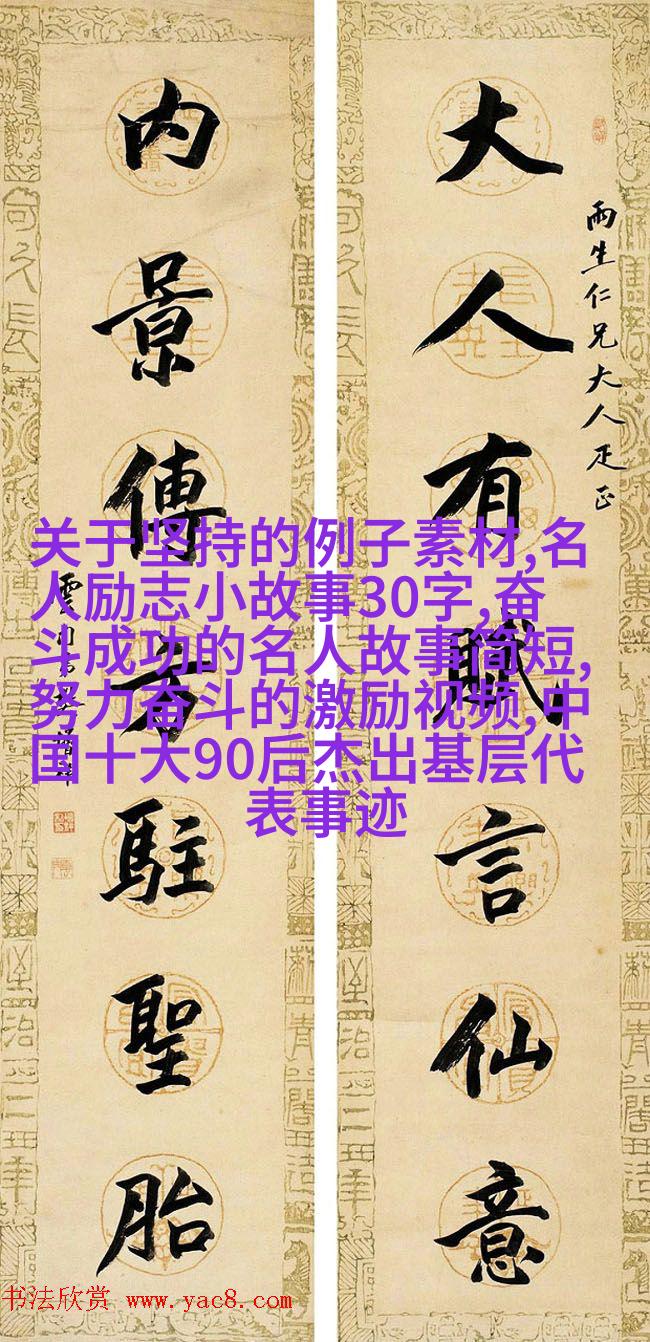 大人有賦言仙意
雨生仁兄大人疋正
内景傳芳駐聖胎
关于坚持的例子素材,名
人励志小故事30字,奋
斗成功的名人故事简短,
努力奋斗的激励视频,中
国十大90后杰出基层代
表事迹
书法欣赏 www.yac8.com